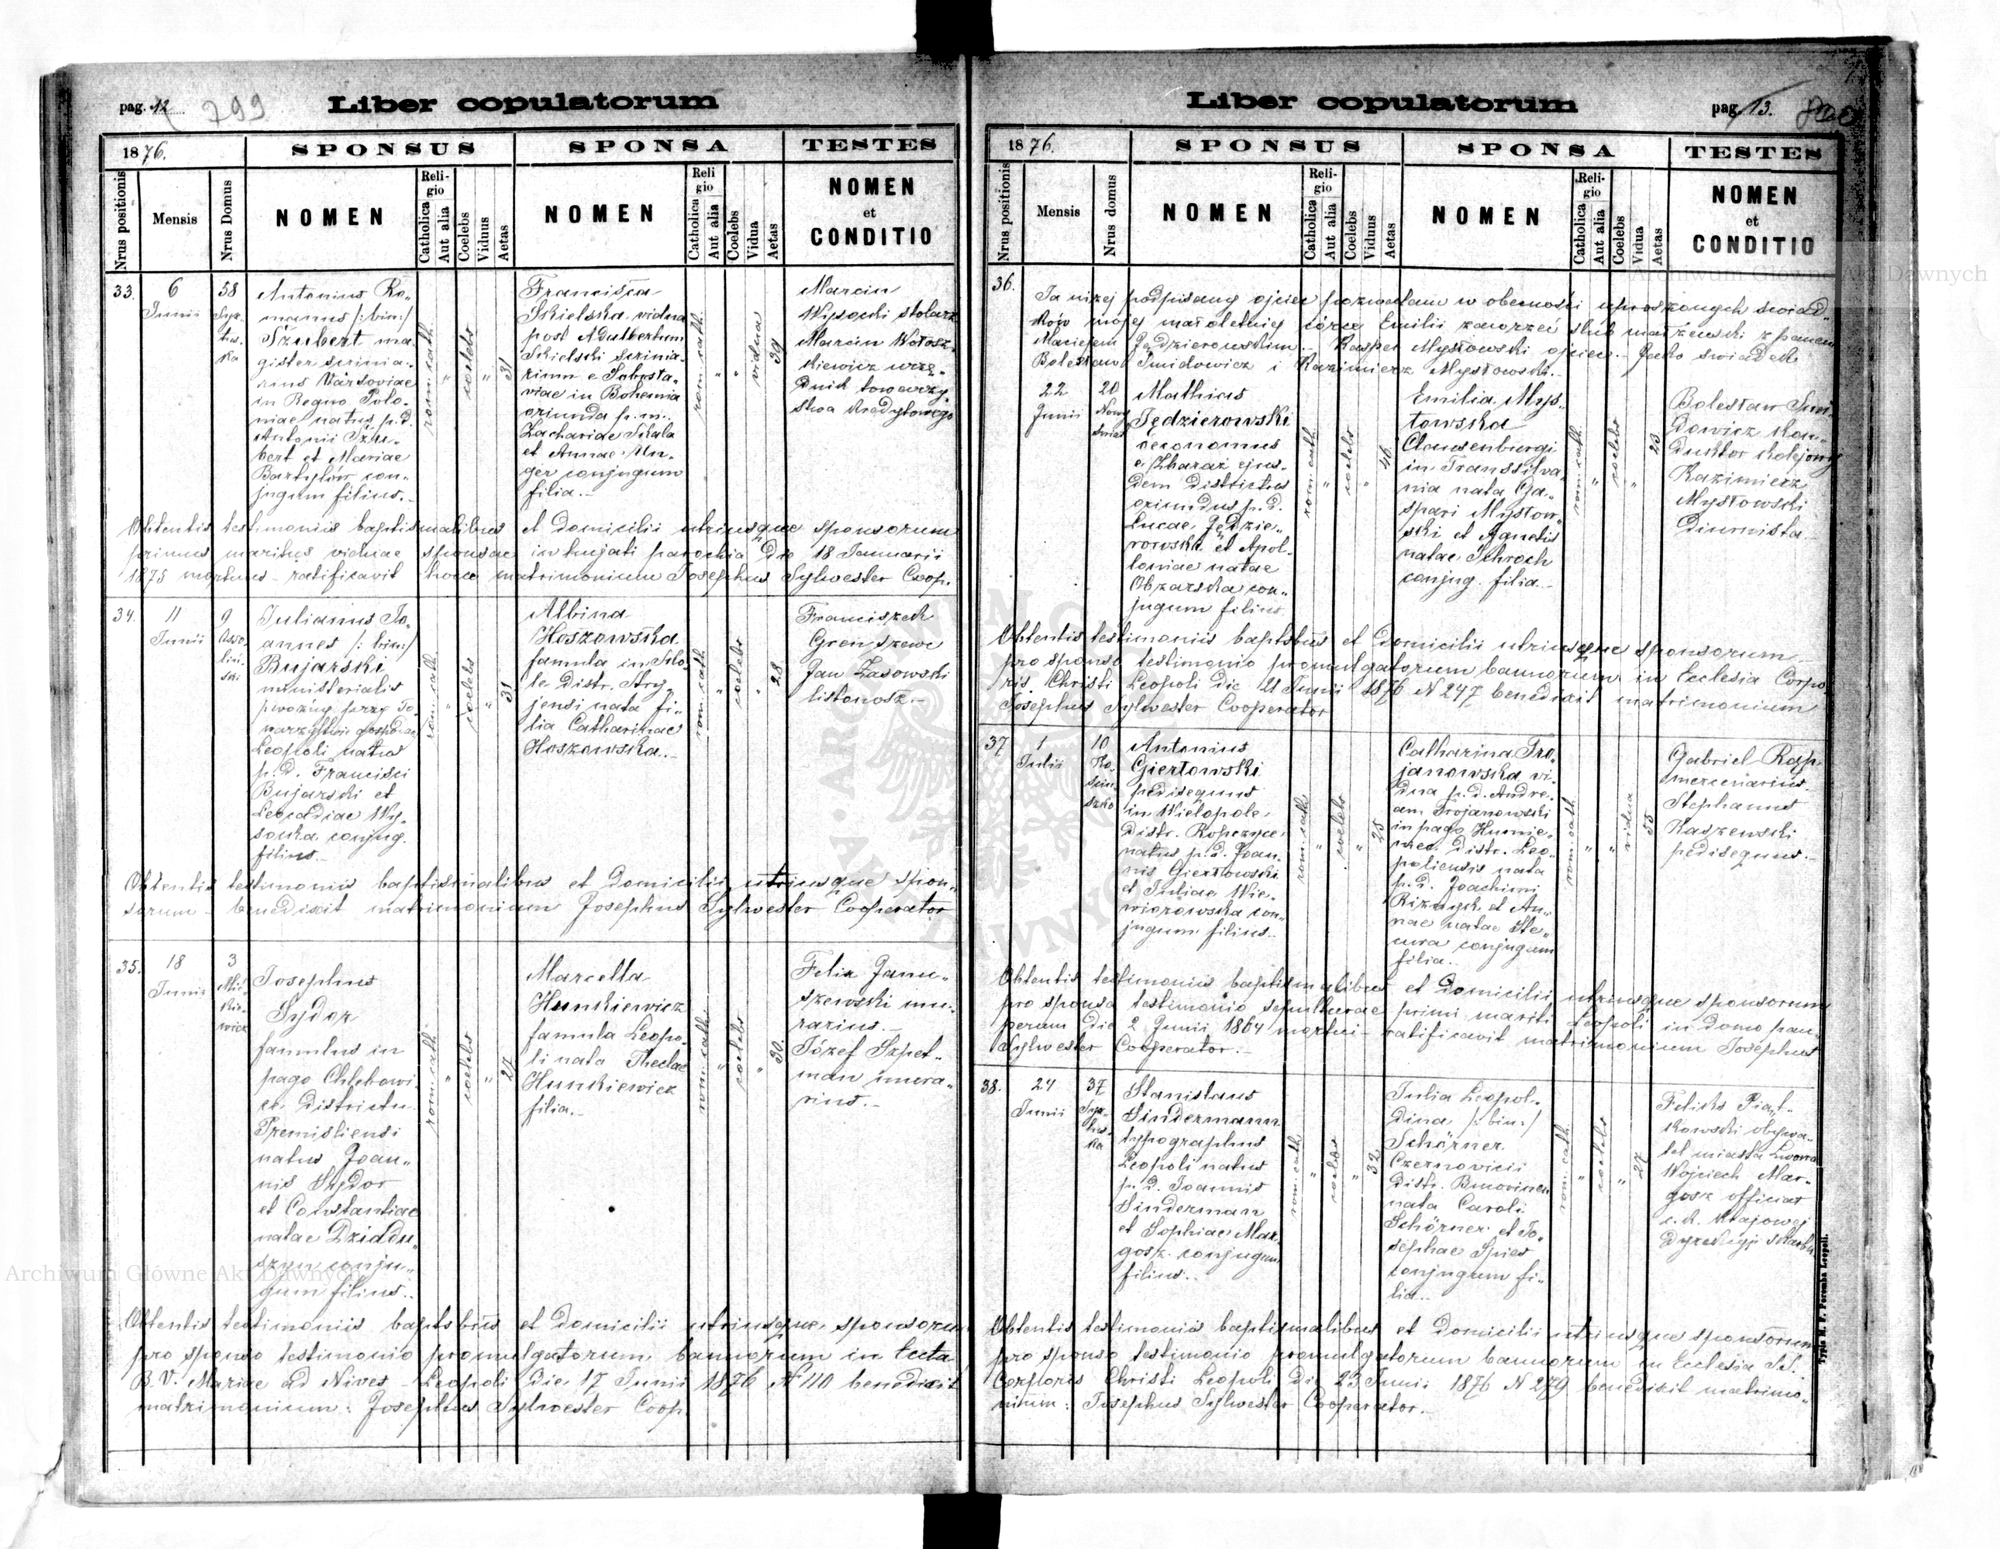 pag. 12
799
Liber copulatorum
1876.
SPONSUS
SPONSA
TESTES
Nrus positionis
Mensis
Nrus Domus
NOMEN
Religio
Catholica
Aut alia
Coelebs
Viduus
Aetas
NOMEN
Religio
Catholica
Aut alia
Coelebs
Vidua
Aetas
NOMEN
et
CONDITIO
33.
6
Junii
58
Antonius Ro-
manus /:bin:/
Szubert ma-
gister scrinia-
rius Varsoviae
in Regno Polo-
niae natus p. d.
Antonii Szu-
bert et Mariae
Bartyłów con-
jugum filius.
rom. cath.
"
coelebs
"
31
Francisca
Skielska vidua
post Adalbertum
Skielski scrinia-
rium e Sobosta-
viae in Bohemia
oriunda p. m.
Zachariae Skala
et Annae Un-
ger conjugum
filia.
rom. cath.
"
"
vidua
39
Marcin
Wysocki stolarz
Marcin Wołosz-
kiewicz urzę-
dnik towarzy-
stwa kredytowego
Obtentis testimoniis baptismalibus et domicilii utriusque sponsorum
primus maritus viduae sponsae in hujati parochia die 18 Januarii
1875 mortuus - ratificavit hocce matrimonium Josephus Sylwester Coop.
34.
11
Junii
9
Osso-
liń-
ski
Julianus Jo-
annes /:bin:/
Bujarski
ministerialis
pwoźny przy To-
warzystwie gospodar
Leopoli natus
p. d. Francisci
Bujarski et
Leocadiae Wy-
socka conjug.
filius.
rom. cath.
"
coelebs
"
31
Albina
Hoszowska
famula in Sko-
le Distr. Stry-
jensi nata fi-
lia Catharinae
Hoszowska.
rom. cath.
"
coelebs
"
28
Franciszek
Gren szewc
Jan Zasowski
listonosz.
Obtentis testimoniis baptismalibus et domicilii utriusque spon-
sorum - benedixit matrimonium Josephus Sylwester Cooperator
35.
18
Junii
3
Mic-
kie-
wicza
Josephus
Sydor
famulus in
pago Chlebowi-
ce Districtu
Premisliensi
natus Joan-
nis Sydor
et Constantiae
natae Dziadu-
szyn conju-
gum filius.
rom. cath.
"
coelebs
"
27
Marcella
Hunkiewicz
famula Leopo-
li nata Theclae
Hunkiewicz
filia.
rom. cath.
"
coelebs
"
30.
Felix Janu-
szewski mu-
rarius.
Józef Szpet-
man mura-
rius.
Obtentis testimoniis baptsbus et domicilii utriusque sponsorum
pro sponso testimonio promulgatorum bannorum in Eccla
B. V. Mariae ad Nives Leopoli die 17 Junii 1876 N 110 benedixit
matrimonium: Josephus Sylwester Coop.
Liber copulatorum
pag. 13.
800
1876.
SPONSUS
SPONSA
TESTES
Nrus positionis
Mensis
Nrus domus
NOMEN
Religio
Catholica
Aut alia
Coelebs
Viduus
Aetas
NOMEN
Religio
Catholica
Aut alia
Coelebs
Vidua
Aetas
NOMEN
et
CONDITIO
36.
Ja niżej podpisany ojciec pozwalam w obecności uproszonych świad-
ków mojej małoletniej córce Emilii zawrzeć ślub małżeński z panem
Maciejem Jędzierowskim. Kasper Mysłowski ojciec. Jako świadek
Bolesław Smidowicz i Kazimierz Mysłowski.
22
Junii
20
Nowy
świat
Mathias
Jędzierowski
oeconomus
e Zbaraż ejus-
dem districtus
oriundus p. d.
Lucae Jędzie-
rowski et Apol-
loniae natae
Obzarska con-
jugum filius
rom. cath.
"
coelebs
"
46.
Emilia Mys-
łowska
Claudenburgi
in Transsilva-
nia nata Ga-
spari Mysłow-
ski et Agnetis
natae Schroch
conjug. filia.
rom. cath.
"
coelebs
"
23
Bolesław Smi-
dowicz kon-
duktor kolejowy
Kazimierz
Mysłowski
diurnista
Obtentis testimoniis baptsbus et domicilii utriusque sponsorum
pro sponso testimonio promulgatorum bannorum in Ecclesia Corpo-
ris Christi Leopoli die 21 Junii 1876 N 247 benedixit matrimonium
Josephus Sylwester Cooperator
37
1
Julii
10
Ko-
ściu-
szko
Antonius
Giertowski
pedisequus
in Wielopole
Distr. Ropczyce
natus p. d. Joan-
nis Giertowski
et Juliae Wie-
wiorowska con-
jugum filius.
rom. cath.
"
coelebs
"
25
Catharina Tro-
janowska vi-
dua p. d. Andre-
am Trojanowski
in pago Humie-
niec Distr. Leo-
poliensis nata
p. d. Joachimi
Riznyk et An-
nae natae Ste-
cura conjugum
filia.
rom. cath.
"
"
vidua
55
Gabriel Rap
mercenarius.
Stephanus
Kaszewski
pedisequus.
Obtentis testimoniis baptismalibus et domicilii utriusque sponsorum
pro sponsa testimonio sepulturae primi mariti Leopoli in domo pau-
perum die 2 Junii 1864 mortui - ratificavit matrimonium Josephus
Sylwester Cooperator.
38.
24
Junii
37
Stanislaus
Sindermann
typographus
Leopoli natus
p. d. Joannis
Sinderman
et Sophiae Mar-
gosz conjugum
filius.
rom. cath.
"
coelebs
"
32
Julia Leopol-
dina /:bin:/
Schörner
Czernovicii
Distr. Bucovinen
nata Caroli
Schörner et Jo-
sephae Spies
conjugum fi-
lia.
rom. cath.
"
coelebs
"
27
Feliks Piąt-
kowski obywa-
tel miasta Lwowa
Wojciech Mar-
gosz officiał
c. k. Krajowej
Dyrekcyi skarbu
Obtentis testimoniis baptismalibus et domicilii utriusque sponsorum
pro sponso testimonio promulgatorum bannorum in Ecclesia SS.
Corporis Christi Leopoli die 23 Junii 1876 N 279 benedixit matrimo-
nium: Josephus Sylwester Cooperator.
Typis M. F. Poremba Leopoli.
Archiwum Główne Akt Dawnych
Archiwum Główne Akt Dawnych